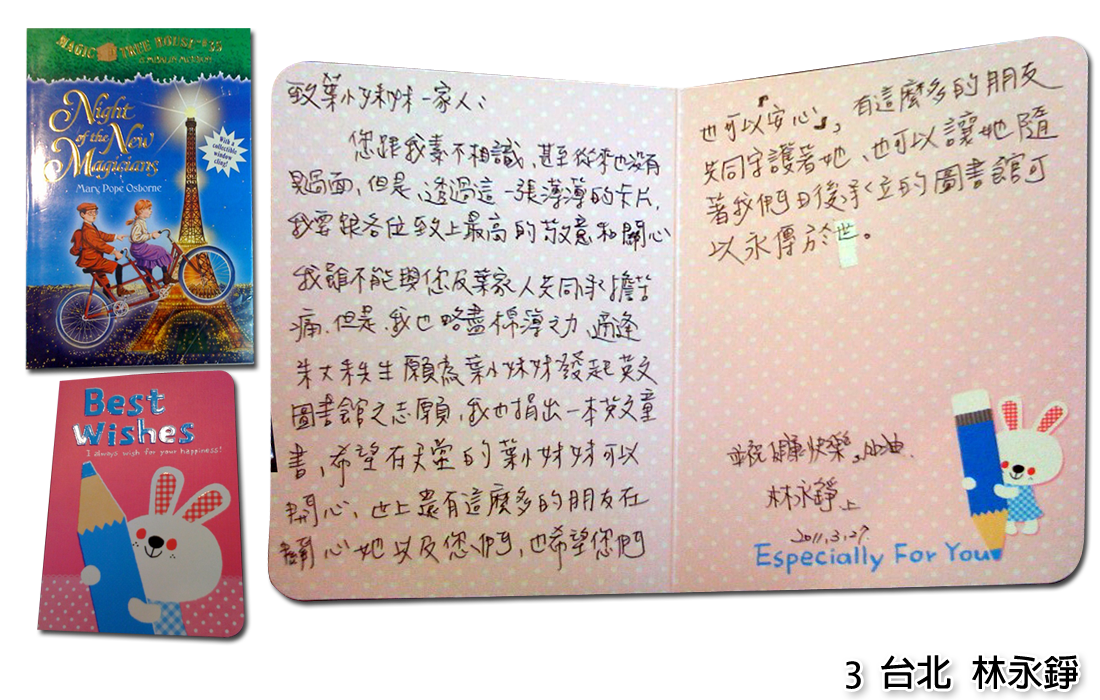 MAGIC TREE HOUSE #35
A MERLIN MISSION
Night
of the New
Magicians
Mary Pope Osborne
With a
collectible
window
cling!
Best
Wishes
I always wish for your happiness!
致葉小妹妹一家人:
您跟我素不相識,甚至從來也沒有
見過面,但是,透過這一張薄薄的卡片,
我要跟各位致上最高的敬意和關心
我雖不能與你及葉家人共同承擔苦
痛,但是,我也略盡棉薄之力,適逢
朱大秩生願為葉小妹妹發起英文
圖書館之志願,我也捐出一本英文童
書,希望在天堂的葉小妹妹可以
開心,世上還有這麼多的朋友在
關心她以及您們,也希望您們
也可以安心,有這麼多的朋友
共同守護著她、也可以讓她隨
著我們日後承立的圖書館可
以永傳於世。
並祝 健康快樂,加油.
林永錚 上
2011.3.27.
Especially For You
3 台北 林永錚